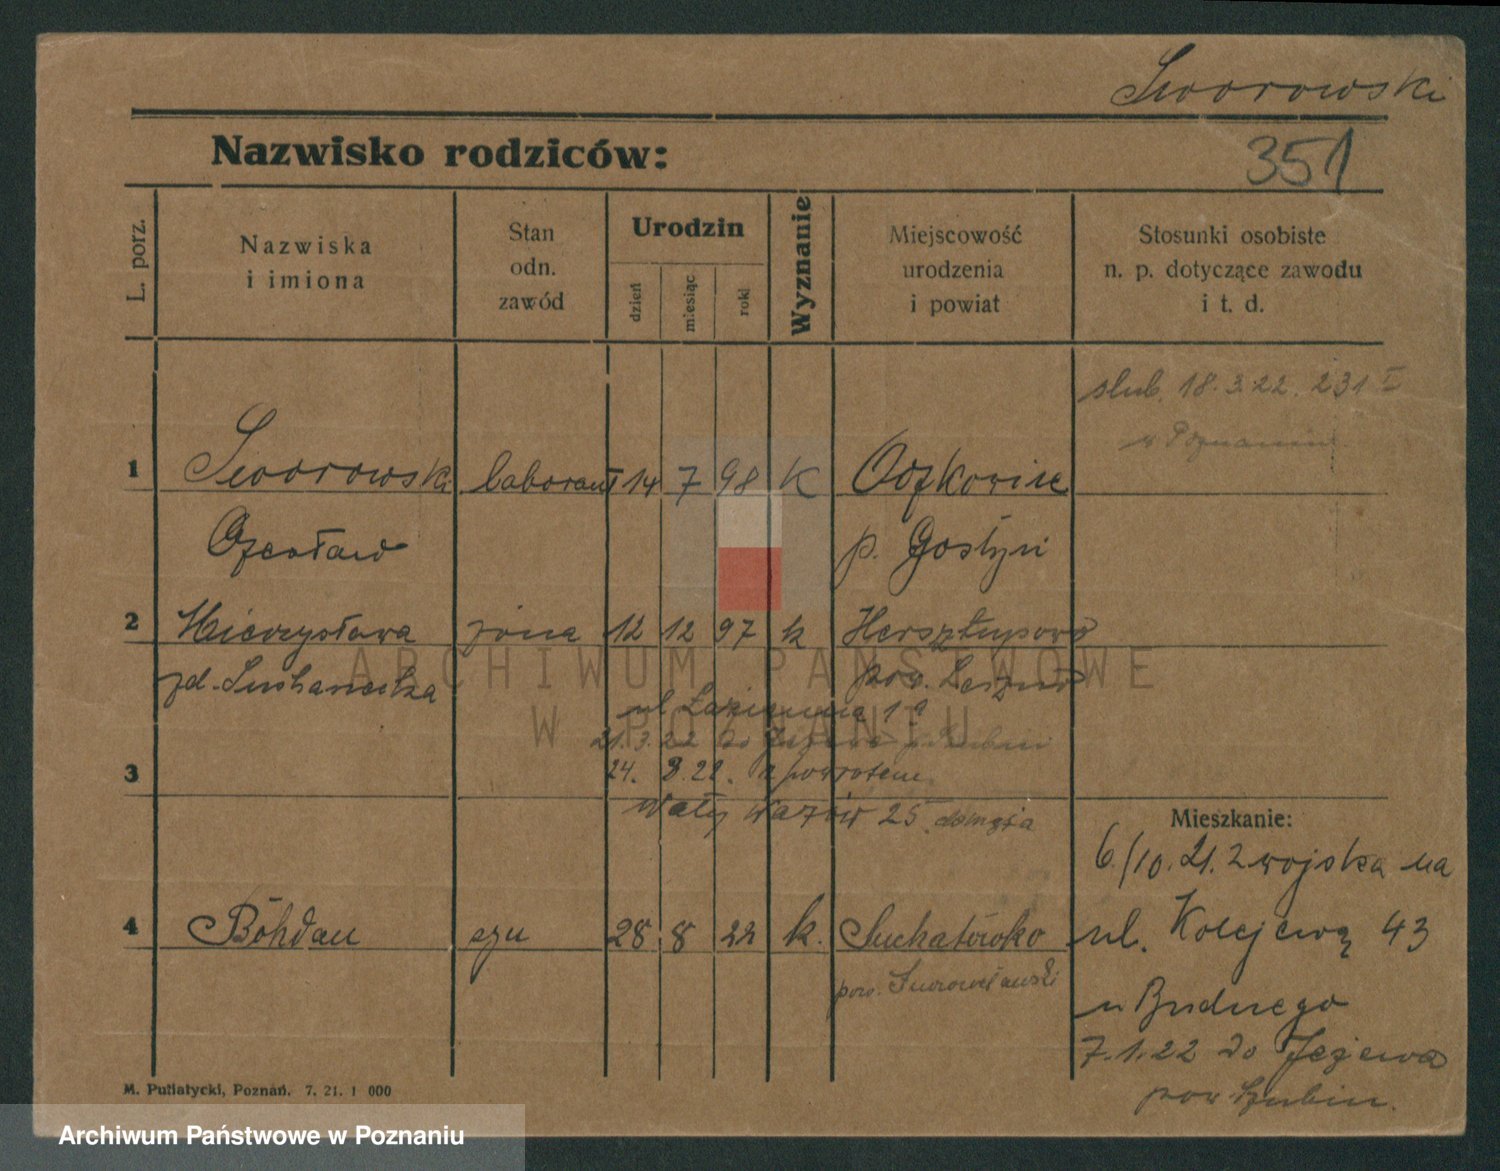 Sworowski
351
Nazwisko rodziców:
L. porz.
Nazwiska
i imiona
Stan
odn.
zawód
Urodzin
dzień
miesiąc
rok
Wyznanie
Miejscowość
urodzenia
i powiat
Stosunki osobiste
n. p. dotyczące zawodu
i t. d.
ślub. 18.3.22. 231 I
w Poznaniu
1 Sworowski laborant 14 7 98 K
Czesław p. Gostyń
2 Mieczysława żona 12 12 97 k
zd. Suchanecka pow. Leszno
ul.
21.3.22 do
3 24. 22. z powrotem
Wały Wazów 25
Mieszkanie:
6/10.21. z wojska na
4 Bohdan syn 28 8 22 k.
ul. Kolejową 43
u Budnego
7.1.22 do Jeżewa
pow Szubin.
M. Putiatycki, Poznań. 7. 21. 1 000
ARCHIWUM PAŃSTWOWE
W POZNANIU
Archiwum Państwowe w Poznaniu